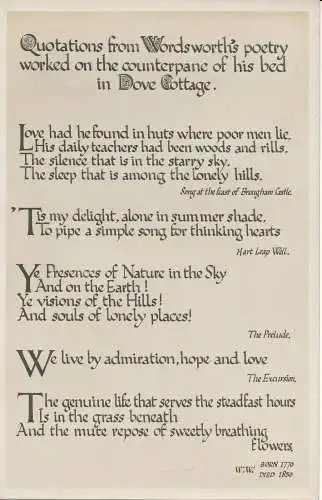 Quotations from Wordsworth's poetry
worked on the counterpane of his bed
in Dove Cottage.
Love had he found in huts where poor men lie.
His daily teachers had been woods and rills,
The silence that is in the starry sky.
The sleep that is among the lonely hills.
Song at the feast of Brougham Castle.
'Tis my delight, alone in summer shade.
To pipe a simple song for thinking hearts
Hart Leap Well.
Ye Presences of Nature in the Sky
And on the Earth!
Ye visions of the Hills!
And souls of lonely places!
The Prelude.
We live by admiration, hope and love
The Excursion.
The genuine life that serves the steadfast hours
Is in the grass beneath
And the mute repose of sweetly breathing
flowers
W.W. BORN 1770
DIED 1850